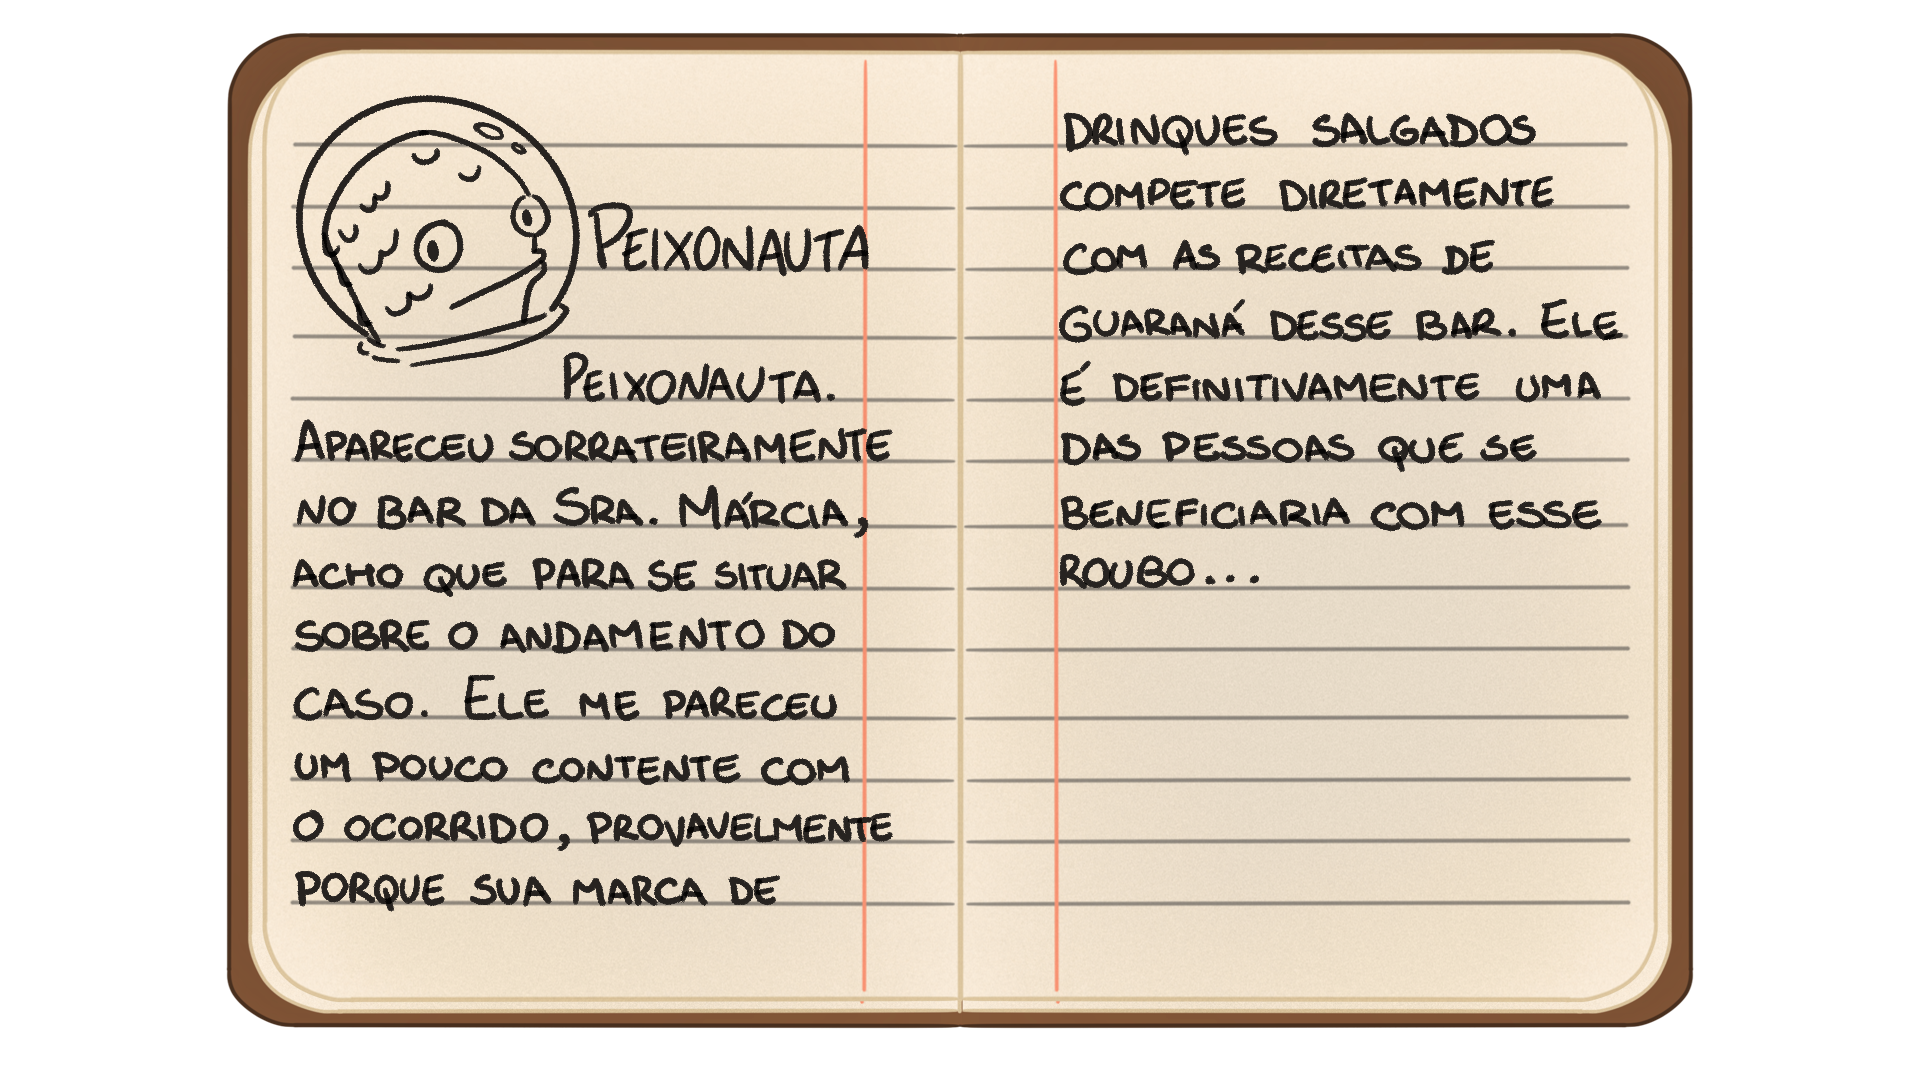 Peixonauta
Peixonauta.
Apareceu sorrateiramente
no bar da Sra. Márcia,
acho que para se situar
sobre o andamento do
caso. Ele me pareceu
um pouco contente com
o ocorrido, provavelmente
porque sua marca de
drinques salgados
compete diretamente
com as receitas de
Guaraná desse bar. Ele
é definitivamente uma
das pessoas que se
beneficiaria com esse
roubo...